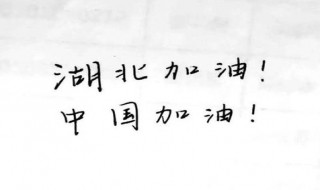 湖北加油!
中国加油!